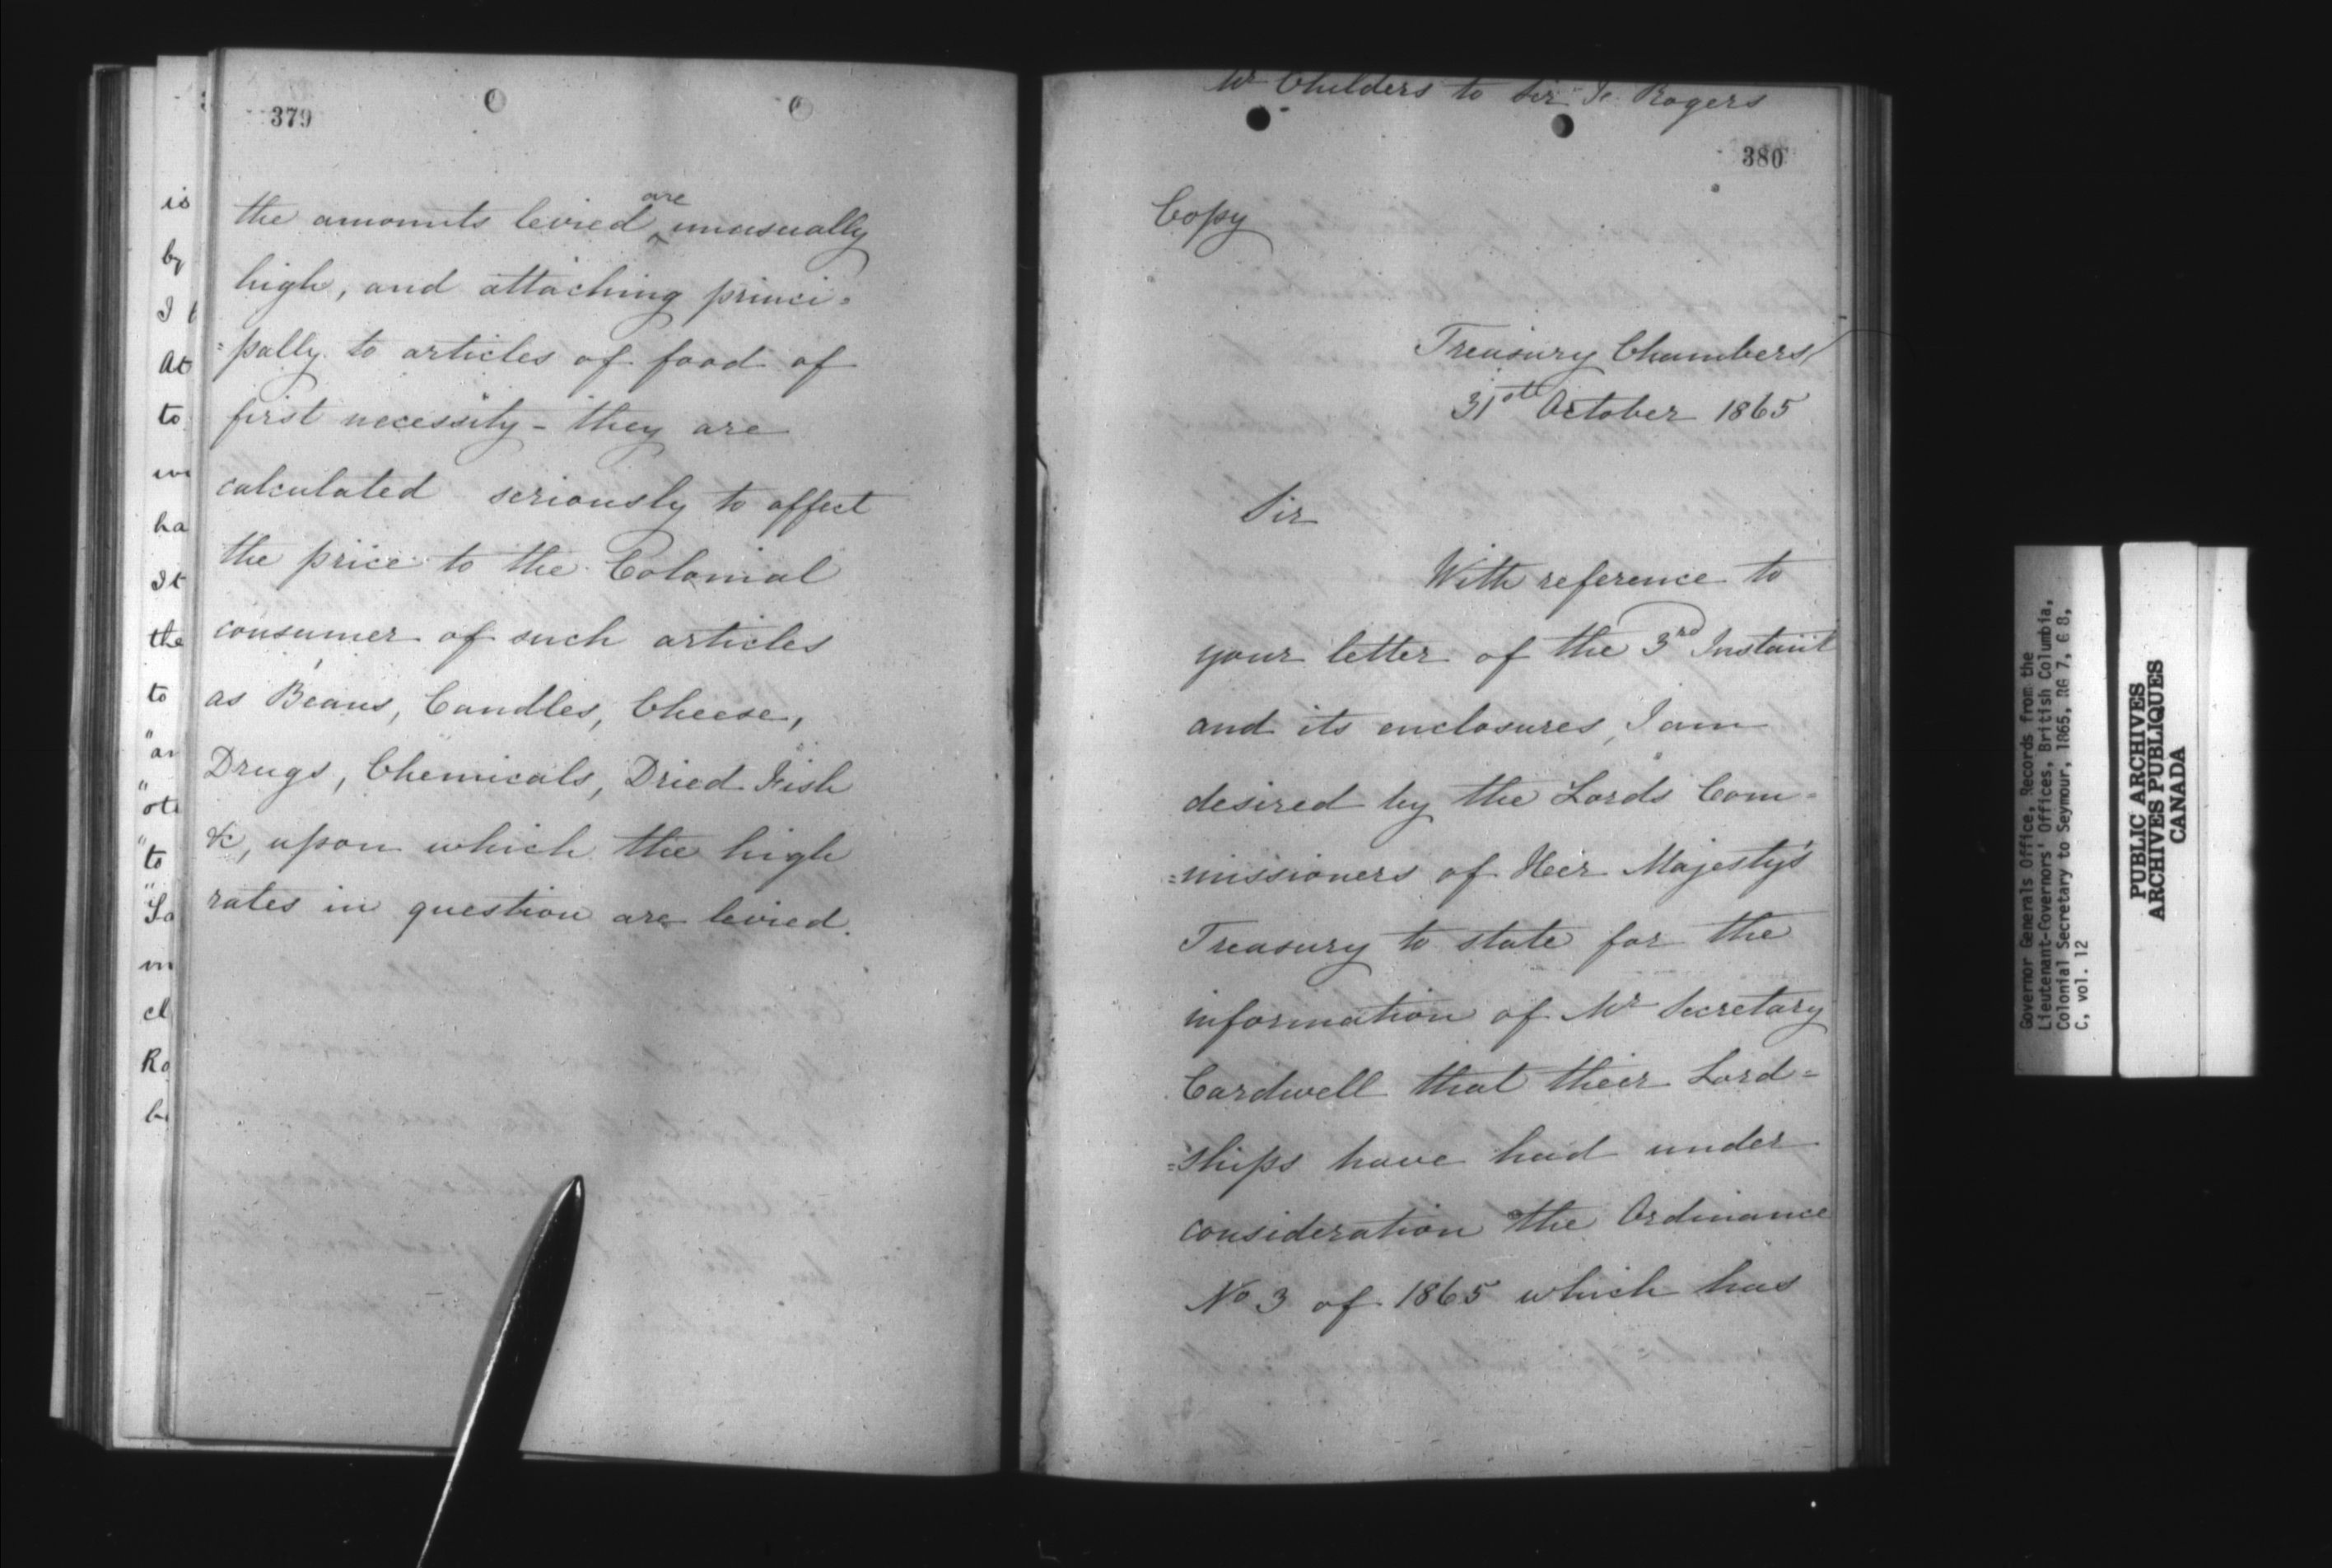 379
the amounts levied are unusually
high, and attaching princi=
=pally to articles of food of
first necessity - they are
calculated seriously to affect
the price to the Colonial
consumer of such articles
as Beans, Candles, Cheese,
Drugs, Chemicals, Dried Fish
&c, upon which the high
rates in question are levied.
is
by
I
At
to
ha
It
the
to
"to
Mr Childers to Sir F. Rogers
380
Copy
Treasury Chambers
31st October 1865
Sir
With reference to
your letter of the 3rd Instant
and its enclosures, I am
desired by the Lords Com=
=missioners of Her Majesty's
Treasury to state for the
information of Mr Secretary
Cardwell that their Lord=
=ships have had under
consideration the Ordinance
No 3 of 1865 which has
Governor Generals Office, Records from the
Lieutenant-Governors' Offices, British Columbia,
Colonial Secretary to Seymour, 1865, RG 7, G 8,
C, vol. 12
PUBLIC ARCHIVES
ARCHIVES PUBLIQUES
CANADA